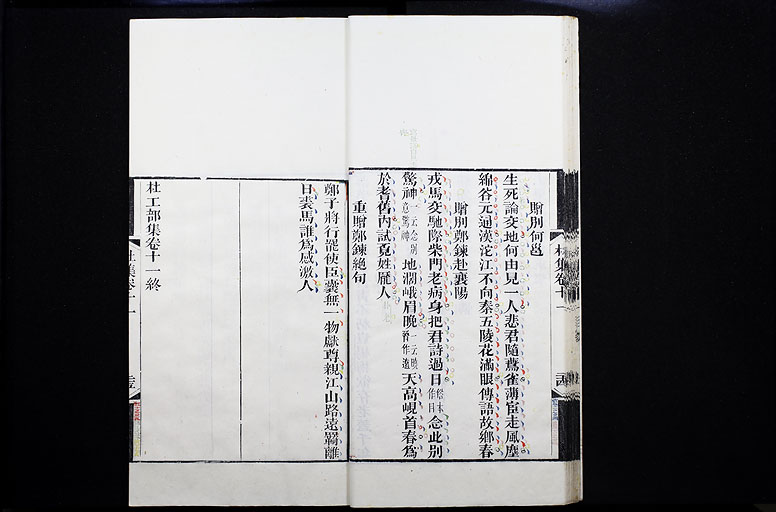 贈別何邕
生死論交地何由見一人悲君隨燕雀薄宦走風塵
緜谷元通漢沱江不向秦五陵花滿眼傳語故鄉春
贈別鄭鍊赴襄陽
戎馬交馳際柴門老病身把君詩過日念此別
驚神一云念別意驚神地濶峨眉晚天高峴首春爲
於耆舊內試覓姓龐人
重贈鄭鍊絕句
鄭子將行罷使臣囊無一物獻尊親江山路遠羈離
日裘馬誰爲感激人
杜工部集卷十一終
杜集卷十一